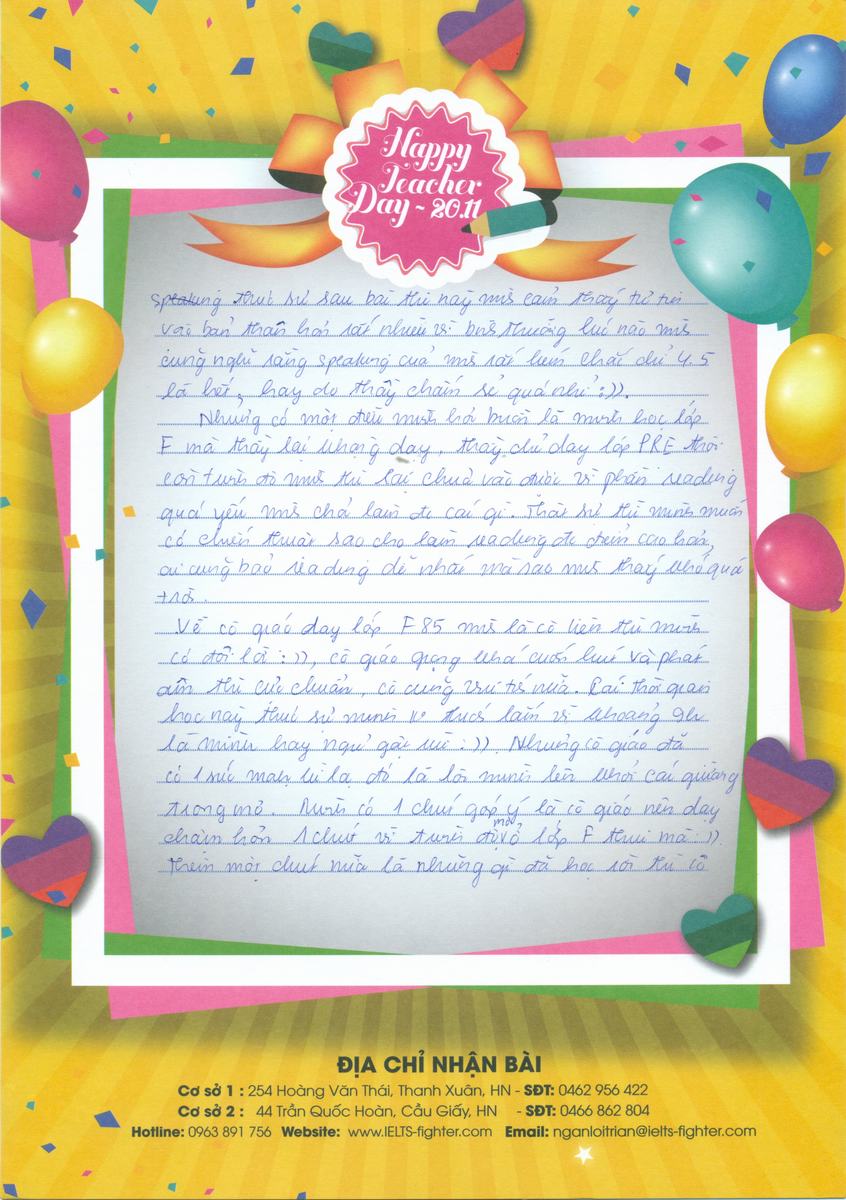 Happy
Teacher
Day ~ 20.11
speaking thực sự sau bài thi này mình cảm thấy tự tin
vào bản thân hơn rất nhiều vì bình thường lúc nào mình
cũng nghĩ rằng speaking của mình rất kém chắc chỉ 4.5
là hết, hay do thầy chấm sẽ quá nhỉ :)).
Nhưng có một điều mình hơi buồn là mình học lớp
F mà thầy lại không dạy, thầy chỉ dạy lớp PRE thôi
còn trình độ mình thì lại chưa vào được vì phần reading
quá yếu mình chả làm đc cái gì. Thật sự thì mình muốn
có chiến thuật sao cho làm reading đc điểm cao hơn,
ai cũng bảo reading dễ nhất mà sao mình thấy khó quá
trời.
Về cô giáo dạy lớp F85 mình là cô Liên thì mình
có đôi lời :)), cô giáo giọng khá cuốn hút và phát
âm thì cực chuẩn, cô cũng vui tính nữa. Cái thời gian
học này thực sự mình ko thích lắm vì khoảng 9h
là mình hay ngủ gật lùi :)) Nhưng cô giáo đã
có 1 sức mạnh kì lạ đó là lôi mình lên khỏi cái giường
trong mơ. Mình có 1 chút góp ý là cô giáo nên dạy
chậm hơn 1 chút vì trình độ mới ở lớp F thui mà :)).
Thêm một chút nữa là những gì đã học rồi thì cô
ĐỊA CHỈ NHẬN BÀI
Cơ sở 1 : 254 Hoàng Văn Thái, Thanh Xuân, HN - SĐT: 0462 956 422
Cơ sở 2 : 44 Trần Quốc Hoàn, Cầu Giấy, HN - SĐT: 0466 862 804
Hotline: 0963 891 756 Website: www.IELTS-fighter.com Email: nganloitrian@ielts-fighter.com